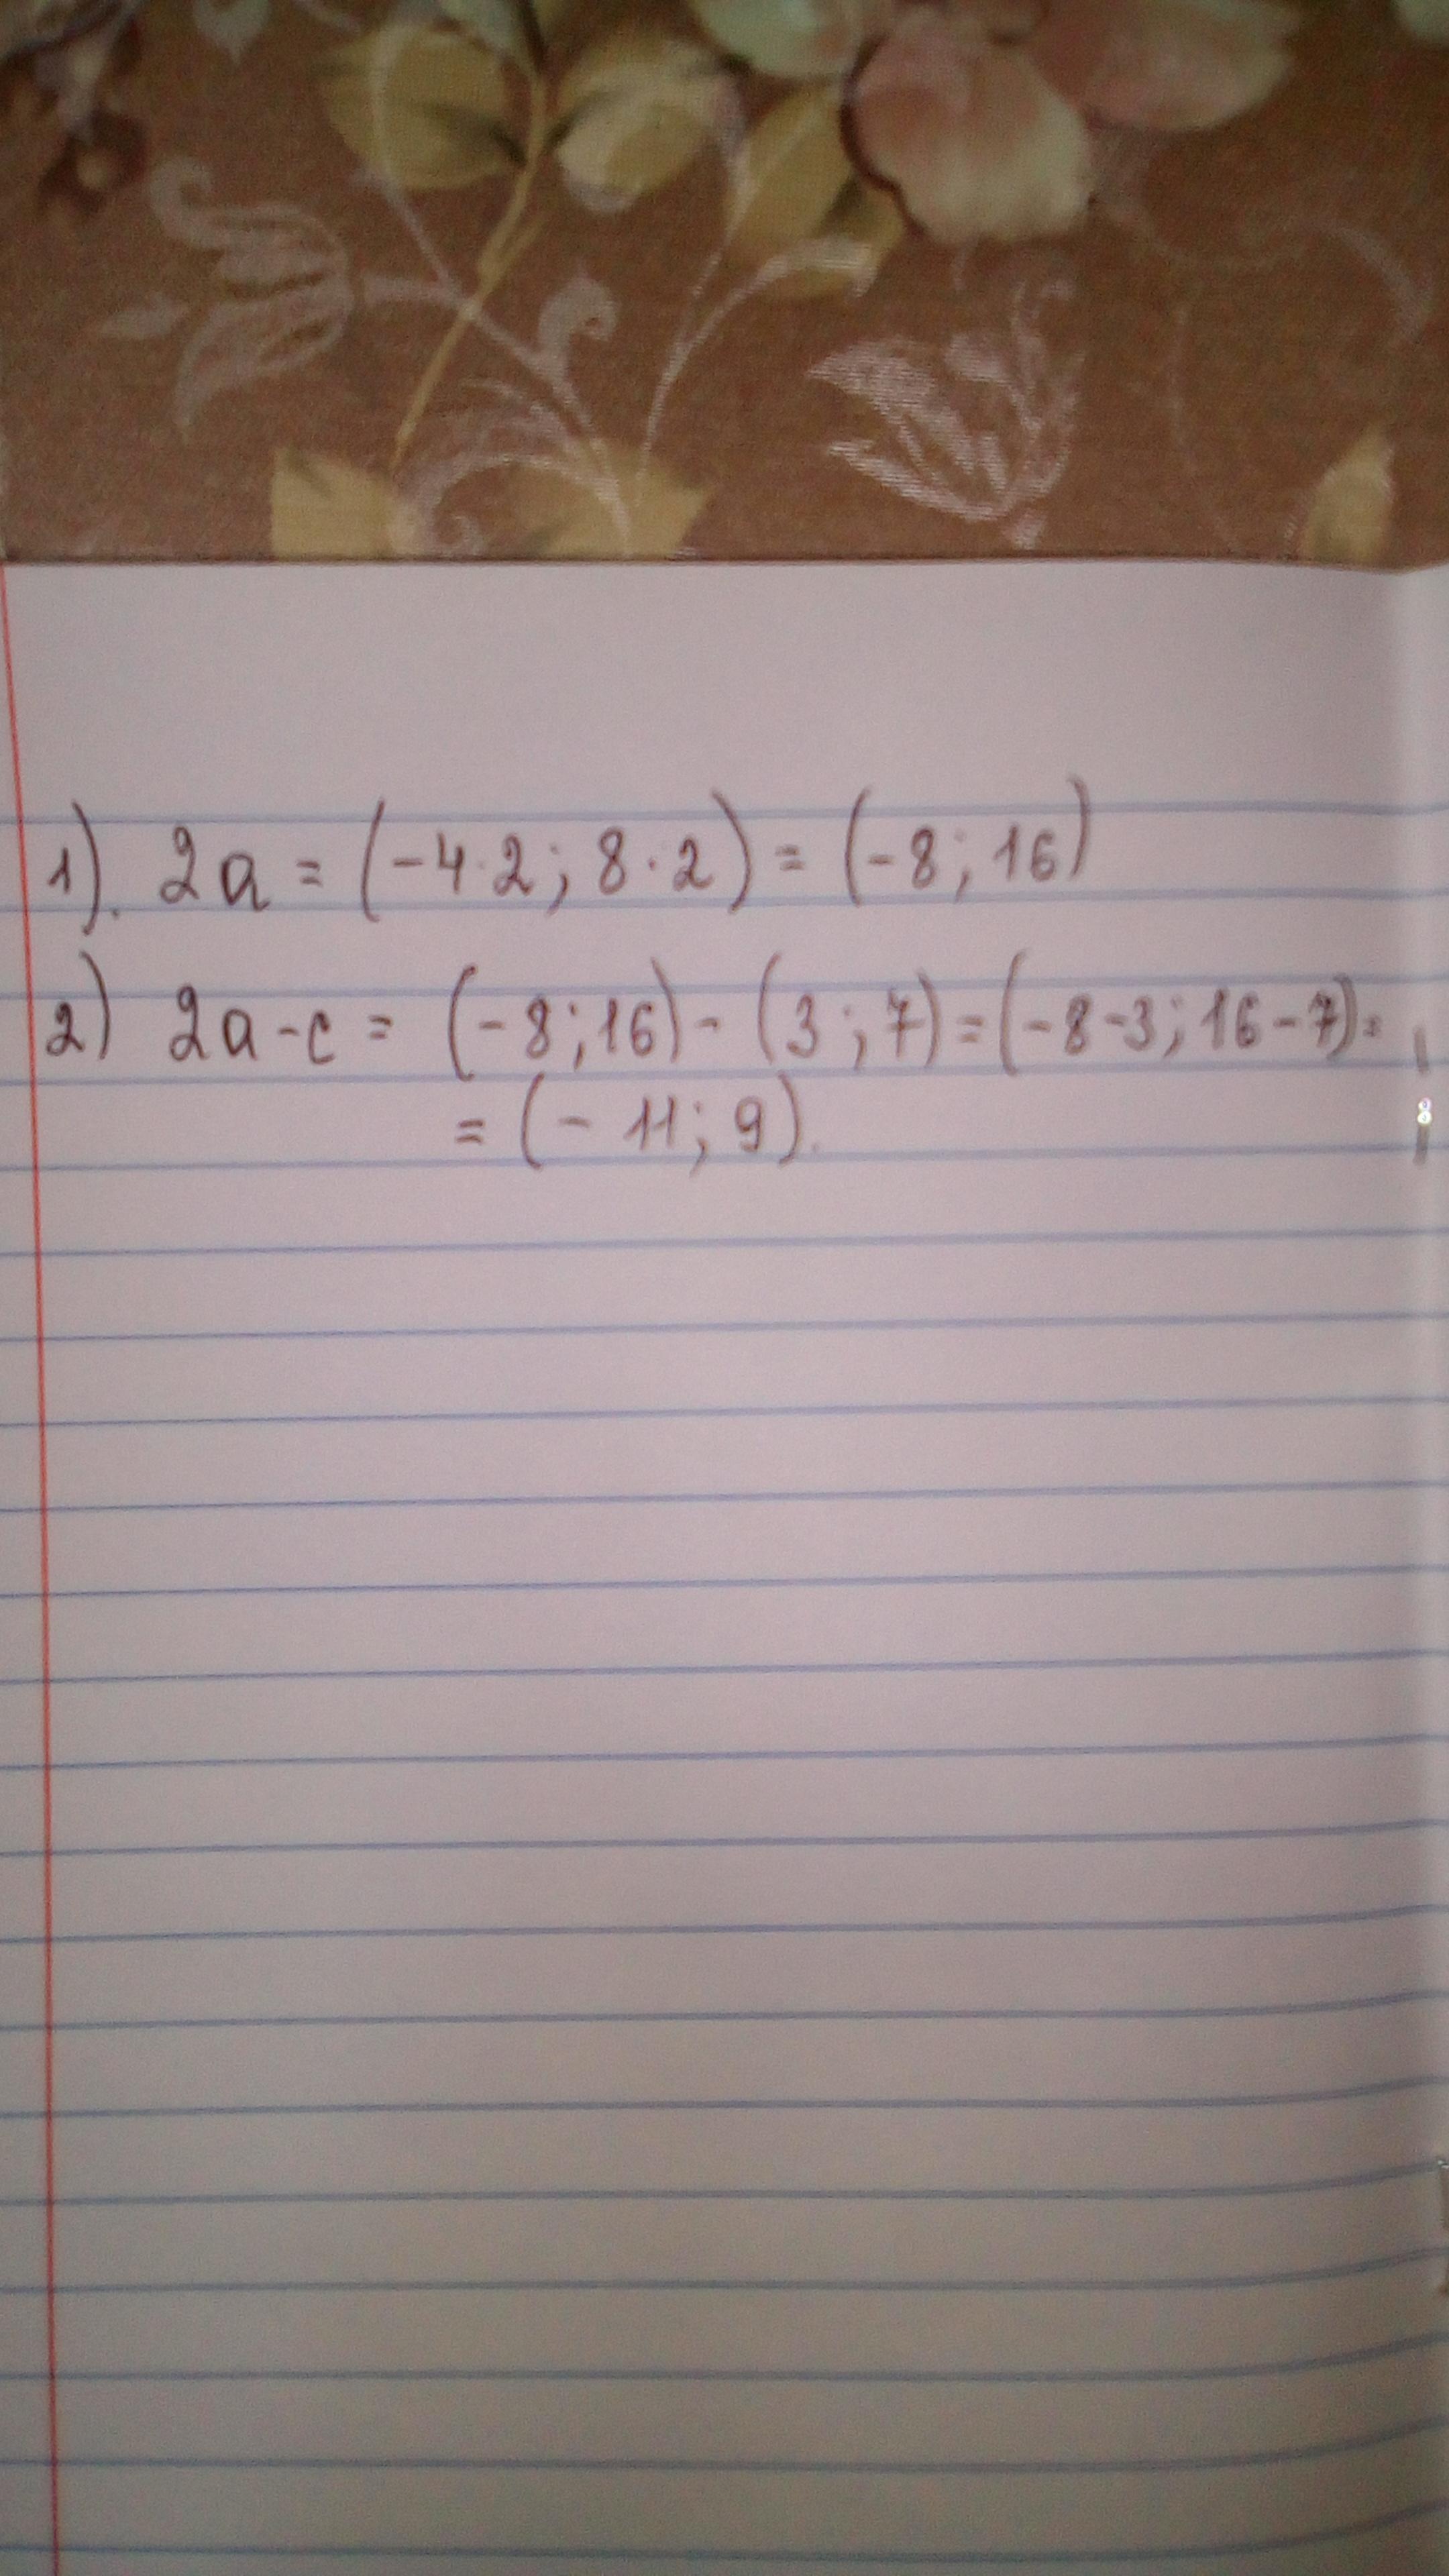 1). 2a = (-4·2; 8·2) = (-8; 16)
2) 2a-c = (-8; 16) - (3; 7) = (-8-3; 16-7) =
= (- 11; 9).